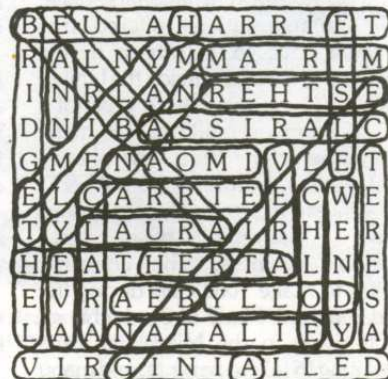 B E U L A H A R R I E T
R A L N Y M M A I R I M
I N R L A N R E H T S E
D N I B A S S I R A L C
G M E N A O M I V L E T
E L C A R R I E E C W E
T Y L A U R A I R H E R
H E A T H E R T A L N E
E V R A E B Y L L O D S
L A A N A T A L I E Y A
V I R G I N I A L L E D